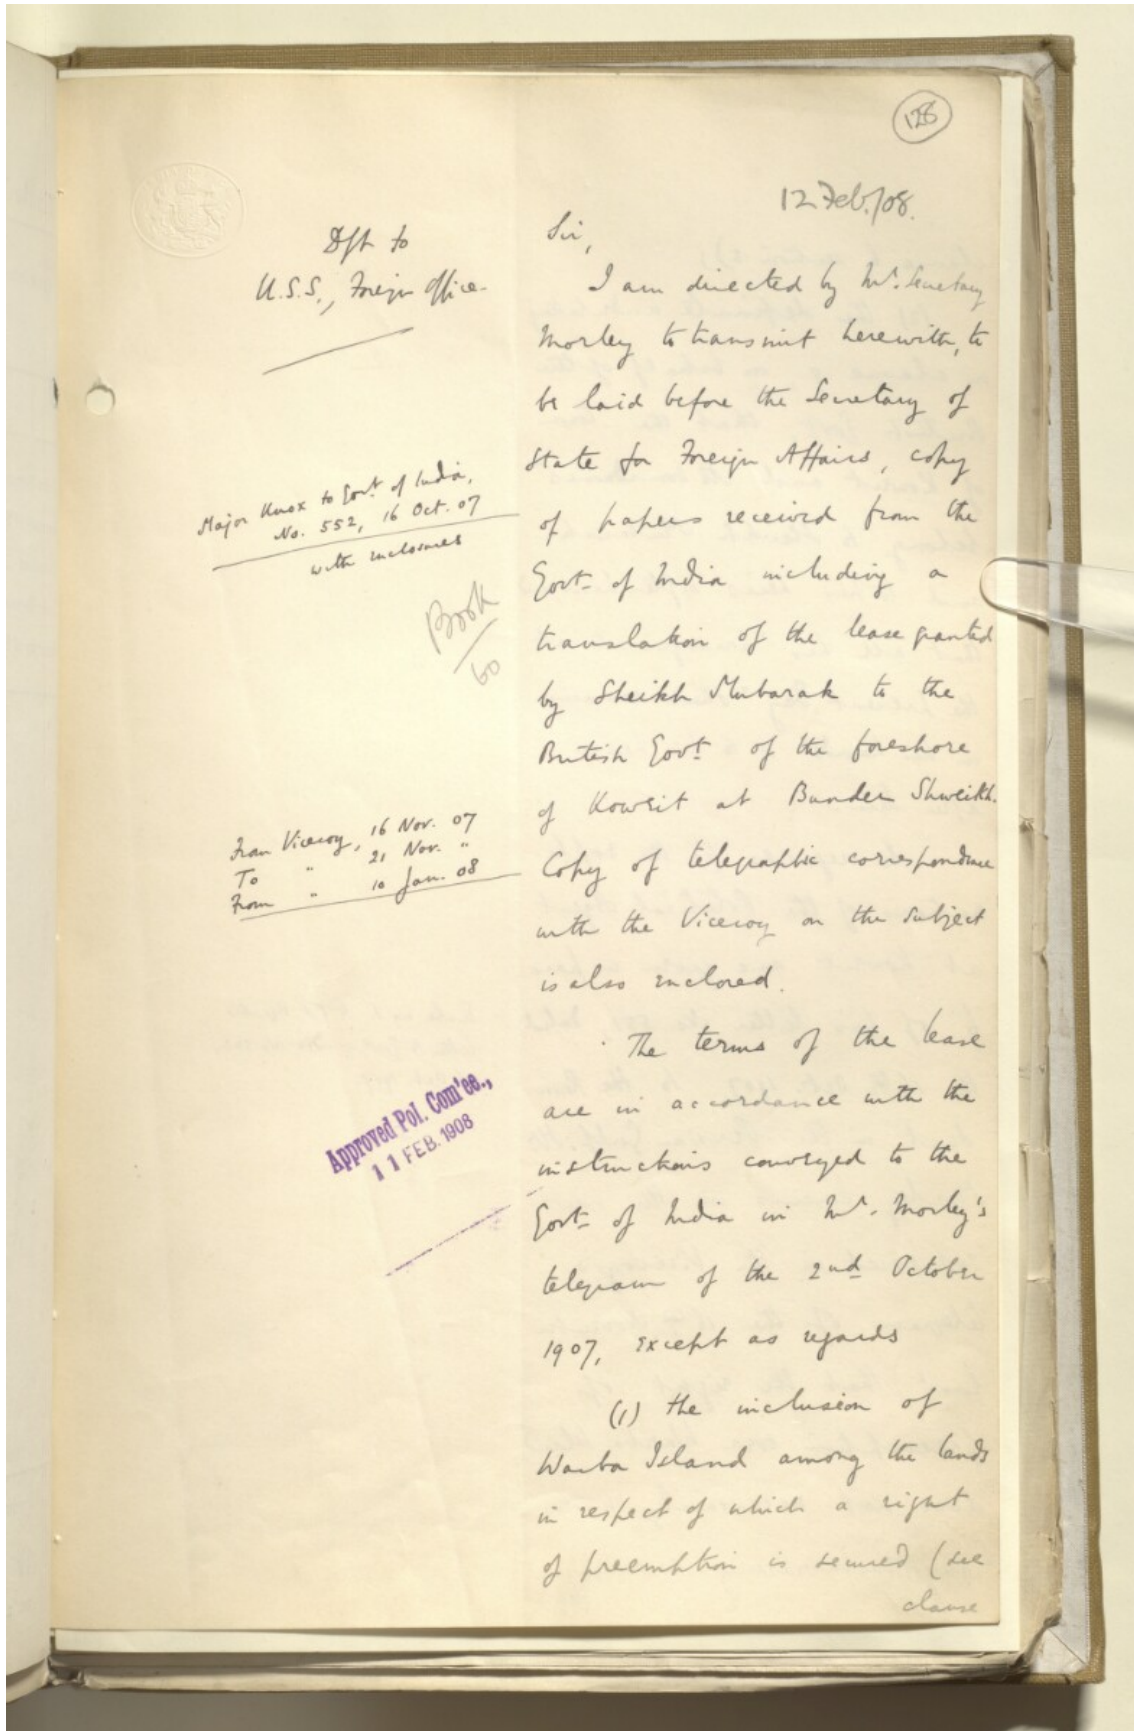 128
12 Feb./08.
Dft to
U.S.S., Foreign Office.
Major Knox to Govt. of India,
No. 552, 16 Oct. 07
with inclosures
Book
60
From Viceroy, 16 Nov. 07
To " 21 Nov. "
From " 10 Jan. 08
Approved Pol. Com'ee.,
11 FEB. 1908
Sir,
I am directed by Mr. Secretary
Morley to transmit herewith, to
be laid before the Secretary of
State for Foreign Affairs, copy
of papers received from the
Govt. of India including a
translation of the lease granted
by Sheikh Mubarak to the
British Govt. of the foreshore
of Koweit at Bunder Shweikh.
Copy of telegraphic correspondence
with the Viceroy on the subject
is also enclosed.
The terms of the lease
are in accordance with the
instructions conveyed to the
Govt. of India in Mr. Morley's
telegram of the 2nd October
1907, except as regards
(1) the inclusion of
Warba Island among the lands
in respect of which a right
of preemption is secured (see
clause